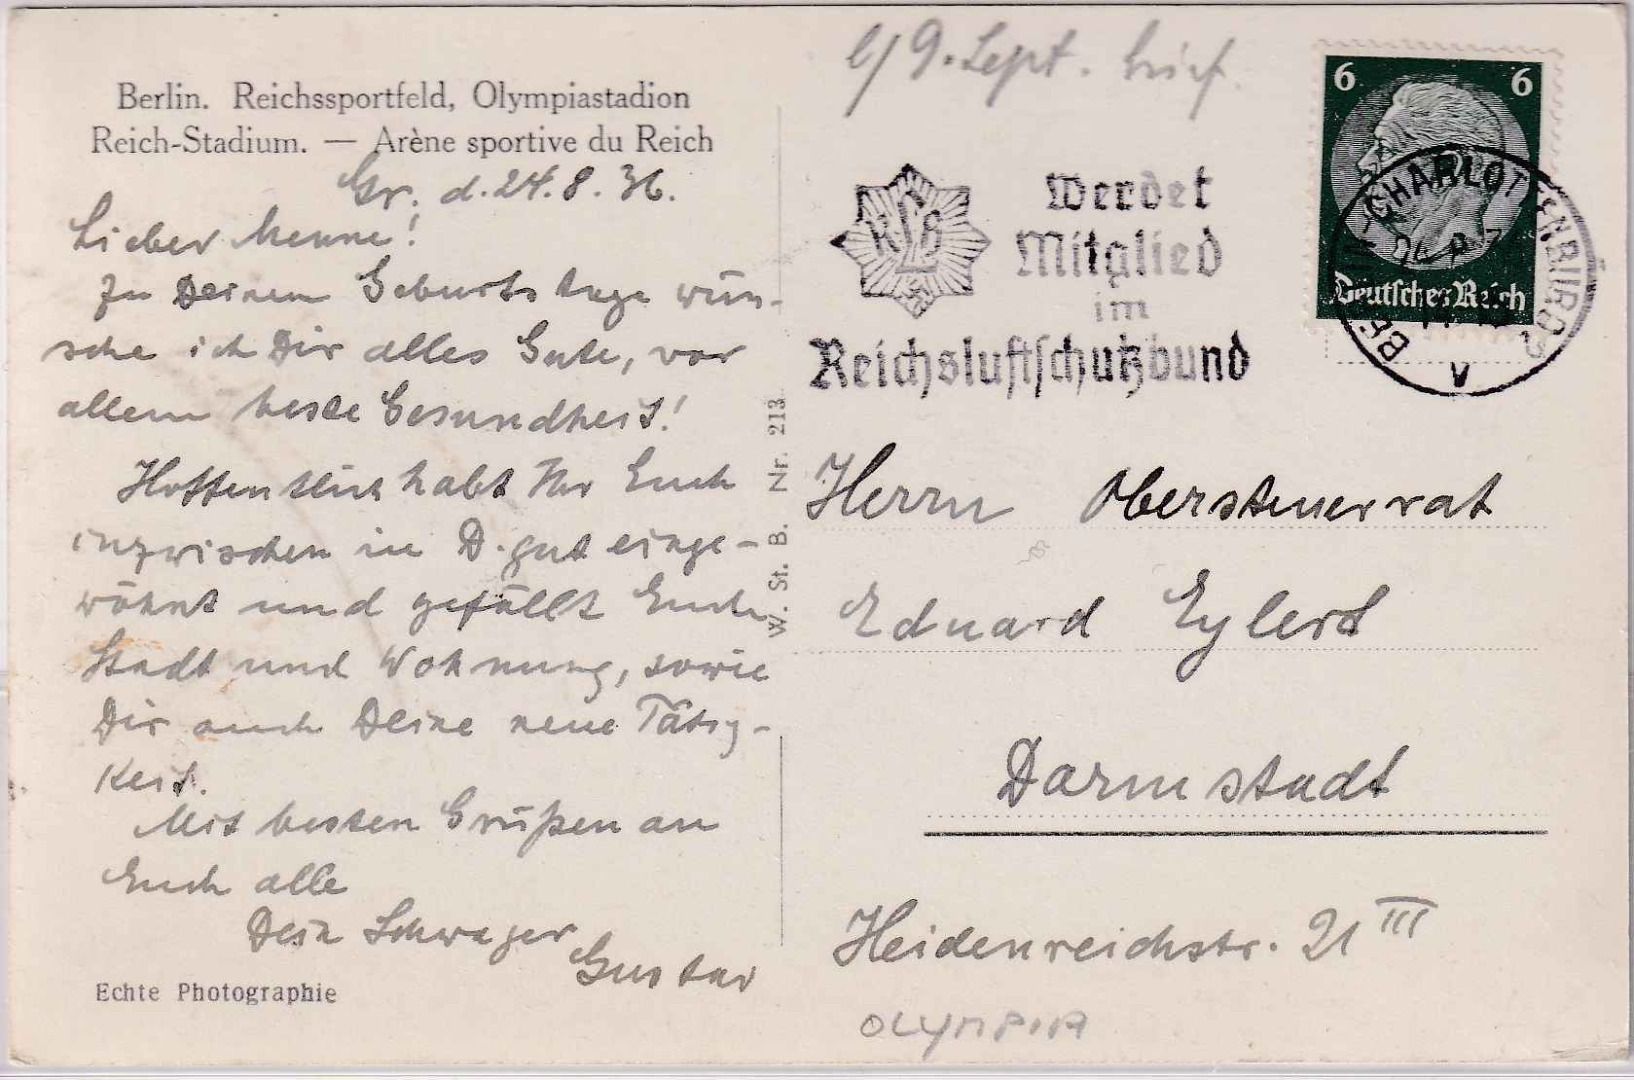 Berlin. Reichssportfeld, Olympiastadion
Reich-Stadium. — Arène sportive du Reich
Gr. d. 24.8.36.
Lieber Menne!
Zu Deinem Geburtstage wün-
sche ich Dir alles Gute, vor
allem beste Gesundheit!
Hoffentlich habt Ihr Euch
inzwischen in D. gut einge-
wöhnt und gefällt Euch
Stadt und Wohnung, sowie
Dir auch Deine neue Tätig-
keit.
Mit besten Grüßen an
Euch alle
Dein Schwager
Gustav
Echte Photographie
W. St. B. Nr. 213
9. Sept. Brief.
RLB
Werdet
Mitglied
im
Reichsluftschutzbund
6 6
Deutsches Reich
BERLIN-CHARLOTTENBURG
V
Herrn Obersteuerrat
Eduard Eylert
Darmstadt
Heidenreichstr. 21 III
OLYMPIA